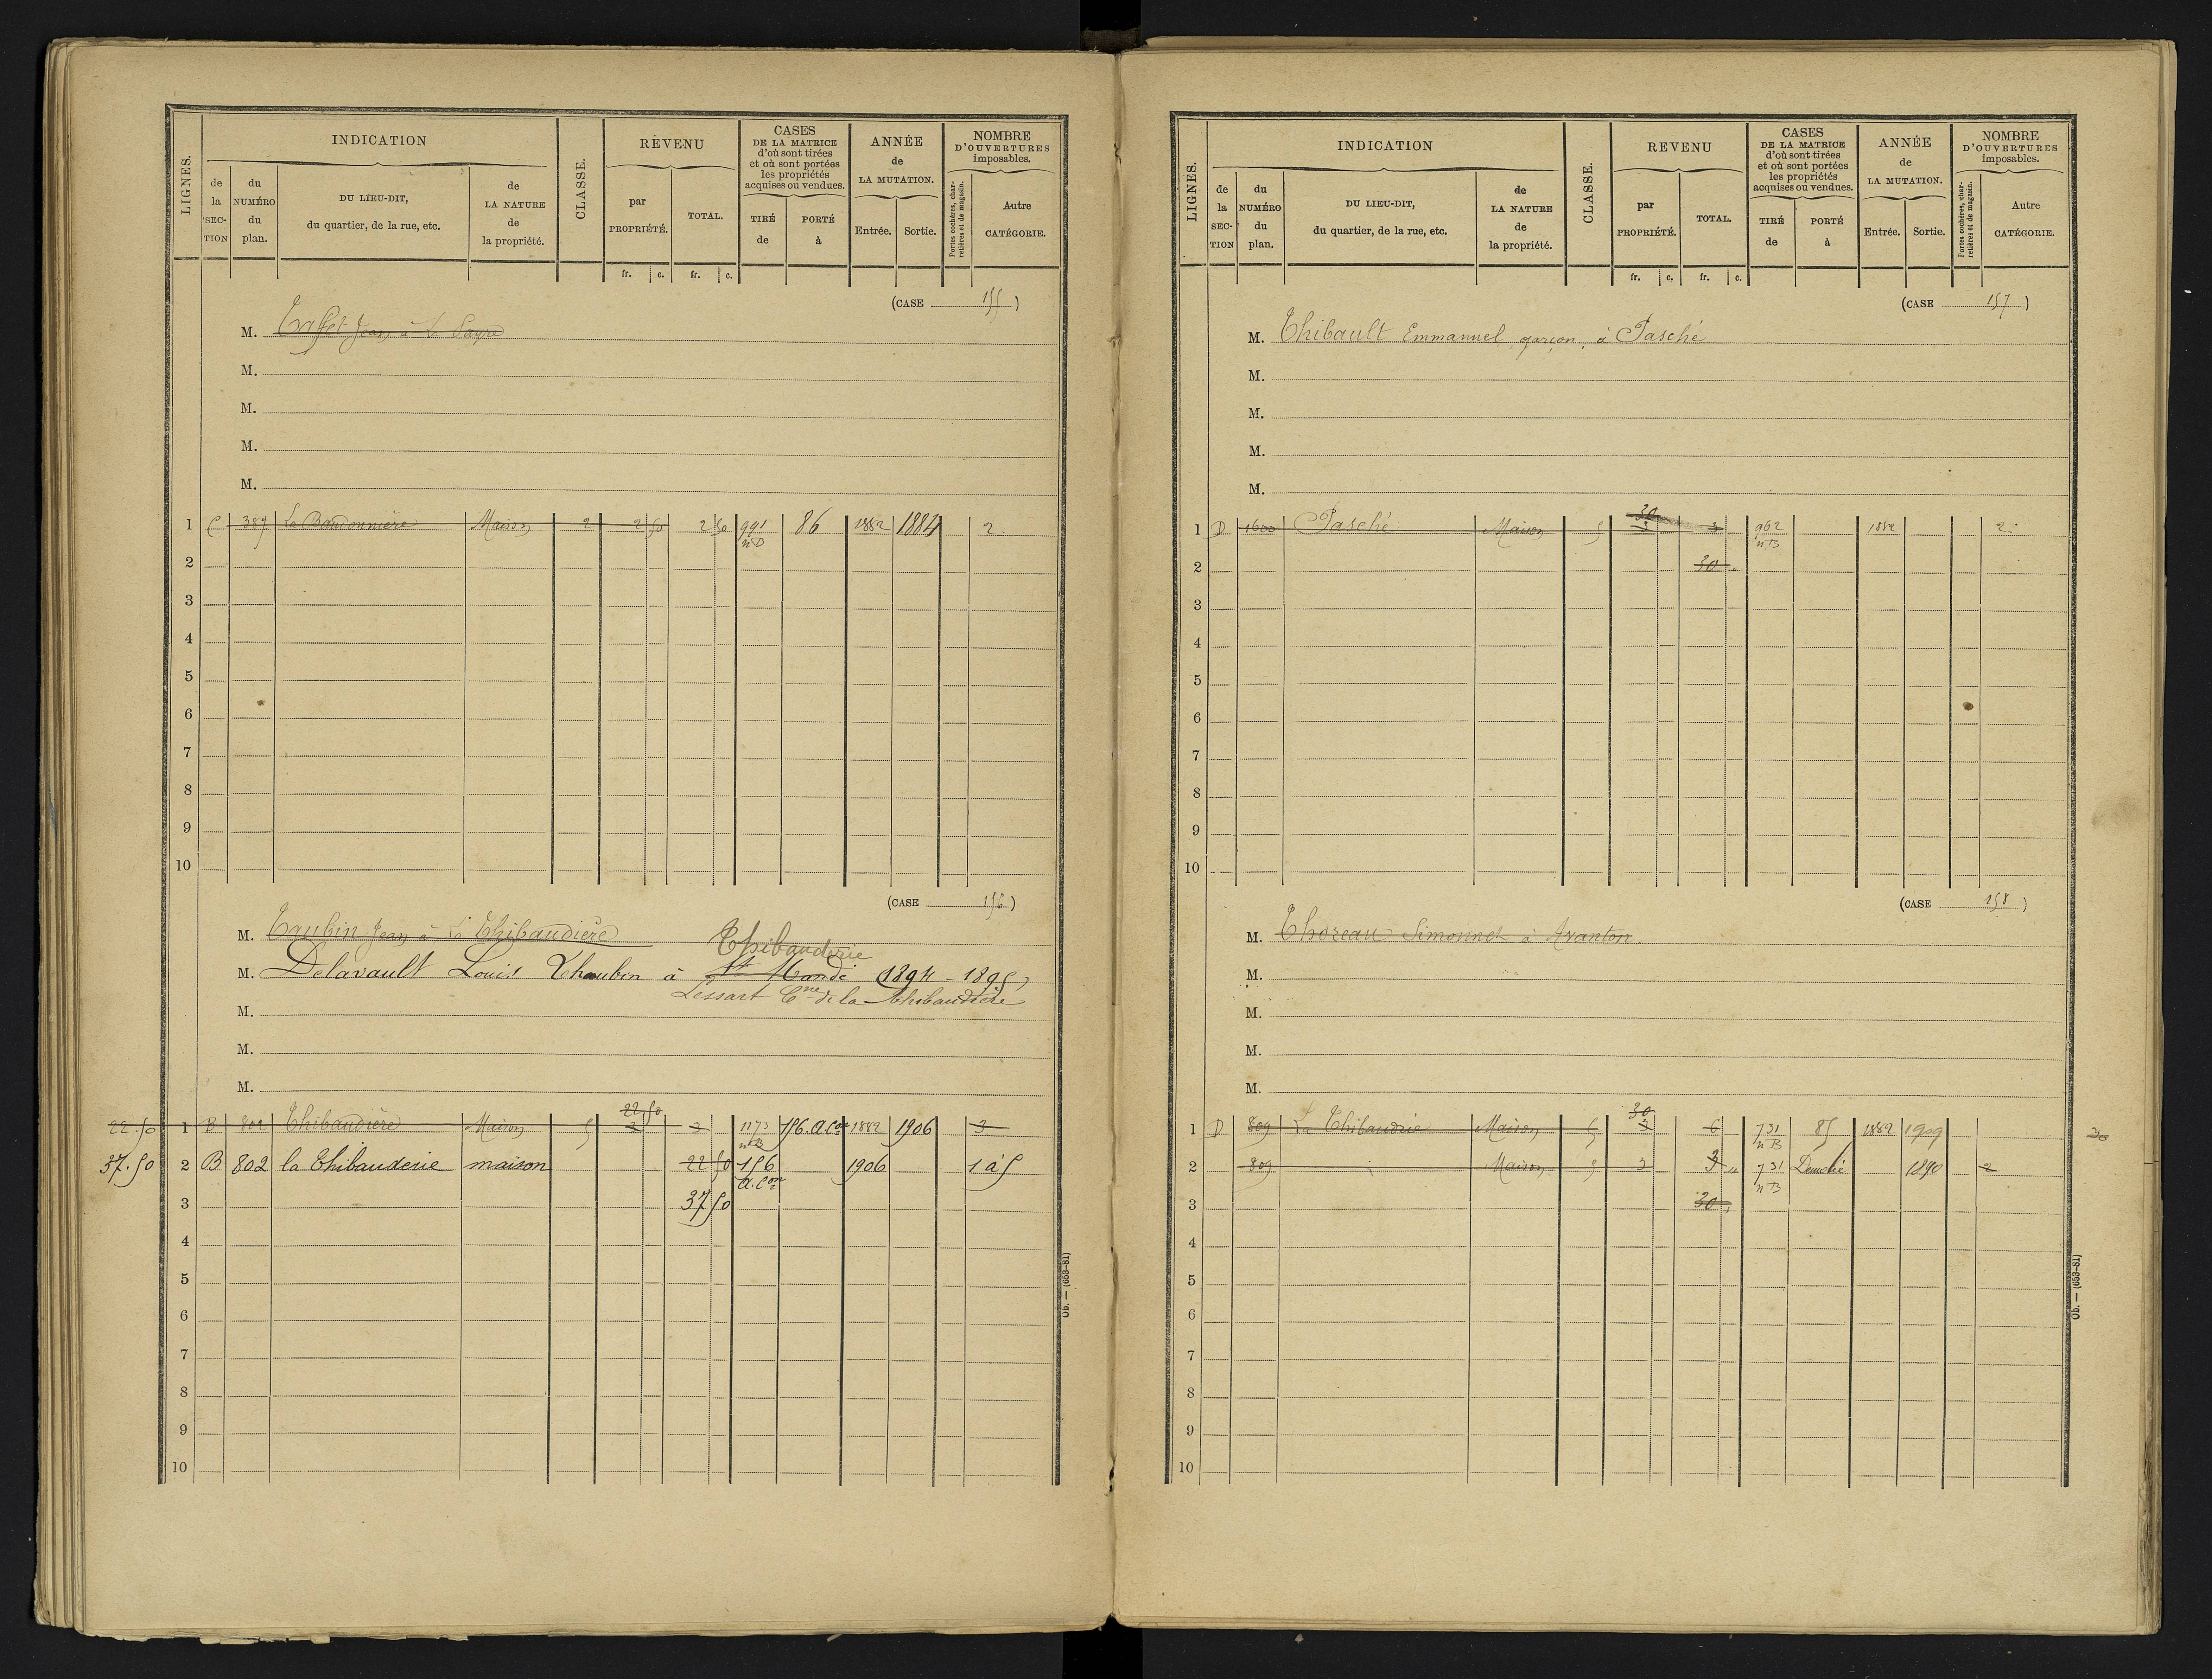 LIGNES.
INDICATION
de la SECTION
du NUMÉRO du plan.
DU LIEU-DIT, du quartier, de la rue, etc.
de LA NATURE de la propriété.
CLASSE.
REVENU
par PROPRIÉTÉ.
TOTAL.
CASES DE LA MATRICE d'où sont tirées et où sont portées les propriétés acquises ou vendues.
TIRÉ de
PORTÉ à
ANNÉE de LA MUTATION.
Entrée.
Sortie.
NOMBRE D'OUVERTURES imposables.
Portes cochères, charretières et de magasin.
Autre CATÉGORIE.
fr. c. fr. c.
(CASE 155)
M. Jean à
M.
M.
M.
M.
1 C 387 La Baudonnière Maison 2 2 50 2 50 991 86 1882 1884 2
nB
2
3
4
5
6
7
8
9
10
(CASE 156)
M. Taubin Jean à La Thibaudière
Thibauderie
M. Delavault Louis Thaubin à St Mandé (1894-1895)
Lessart Cne de la Thibaudière
M.
M.
M.
22,50
22.50 1 B 802 Thibaudière Maison 5 3 3 1173 156. a.con 1882 1906 2
nB
37.50 2 B 802 la Thibauderie maison 22 50 156 1906 1 à 5
a.con
3 37 50
4
5
6
7
8
9
10
Ob. — (653-81)
LIGNES.
INDICATION
de la SECTION
du NUMÉRO du plan.
DU LIEU-DIT, du quartier, de la rue, etc.
de LA NATURE de la propriété.
CLASSE.
REVENU
par PROPRIÉTÉ.
TOTAL.
CASES DE LA MATRICE d'où sont tirées et où sont portées les propriétés acquises ou vendues.
TIRÉ de
PORTÉ à
ANNÉE de LA MUTATION.
Entrée.
Sortie.
NOMBRE D'OUVERTURES imposables.
Portes cochères, charretières et de magasin.
Autre CATÉGORIE.
fr. c. fr. c.
(CASE 157)
M. Thibault Emmanuel garçon, à Pasché
M.
M.
M.
M.
30
1 D 1600 Pasché Maison 5 3 3 962 1882 2
nB
2 30
3
4
5
6
7
8
9
10
(CASE 158)
M. Thoreau Simonnet à Avanton
M.
M.
M.
M.
30
1 D 809 La Thibaudrie Maison 5 3 6 731 85 1882 1909 30
nB
2 809 Maison 5 3 3 731 Démoli 1890 2
nB
3 30
4
5
6
7
8
9
10
Ob. — (653-81)